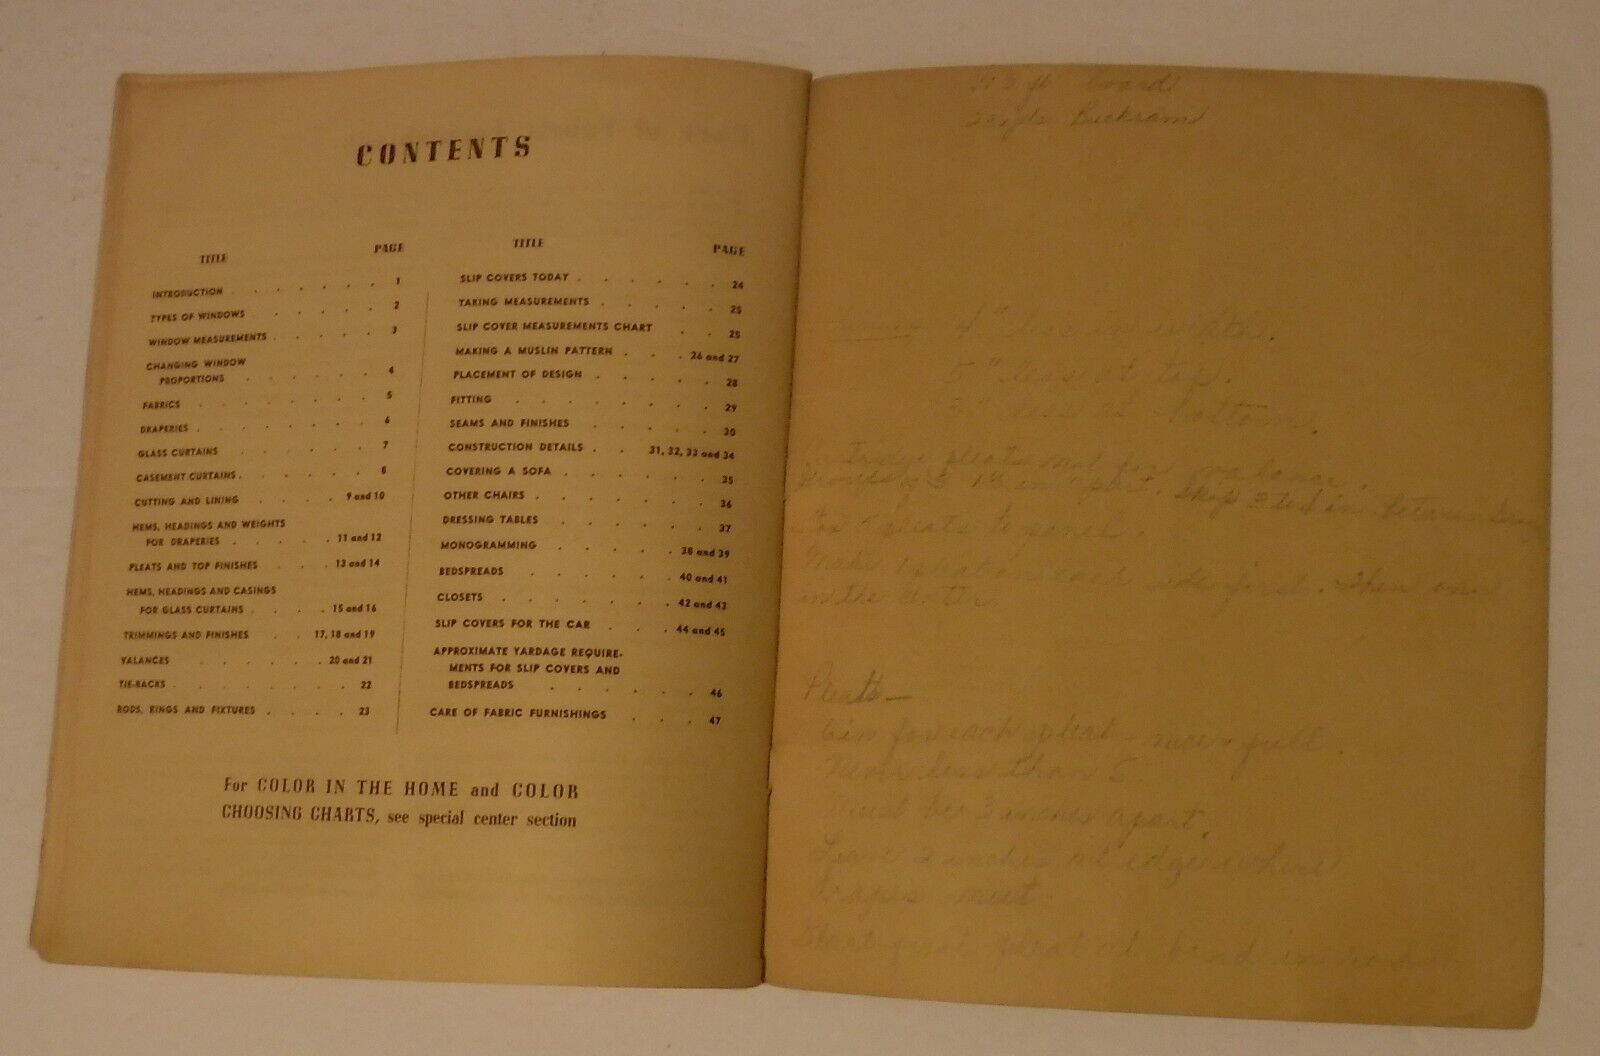 CONTENTS
TITLE PAGE
INTRODUCTION . . . . . . . 1
TYPES OF WINDOWS . . . . . . 2
WINDOW MEASUREMENTS . . . . . 3
CHANGING WINDOW
PROPORTIONS . . . . . . 4
FABRICS . . . . . . . . 5
DRAPERIES . . . . . . . . 6
GLASS CURTAINS . . . . . . 7
CASEMENT CURTAINS . . . . . . 8
CUTTING AND LINING . . . . 9 and 10
HEMS, HEADINGS AND WEIGHTS
FOR DRAPERIES . . . . . 11 and 12
PLEATS AND TOP FINISHES . . . 13 and 14
HEMS, HEADINGS AND CASINGS
FOR GLASS CURTAINS . . . . 15 and 16
TRIMMINGS AND FINISHES . . 17, 18 and 19
VALANCES . . . . . . 20 and 21
TIE-BACKS . . . . . . . . 22
RODS, RINGS AND FIXTURES . . . . 23
TITLE PAGE
SLIP COVERS TODAY . . . . . . 24
TAKING MEASUREMENTS . . . . . 25
SLIP COVER MEASUREMENTS CHART . . 25
MAKING A MUSLIN PATTERN . . . 26 and 27
PLACEMENT OF DESIGN . . . . . 28
FITTING . . . . . . . . 29
SEAMS AND FINISHES . . . . . 30
CONSTRUCTION DETAILS . . 31, 32, 33 and 34
COVERING A SOFA . . . . . . 35
OTHER CHAIRS . . . . . . . 36
DRESSING TABLES . . . . . . 37
MONOGRAMMING . . . . . 38 and 39
BEDSPREADS . . . . . . 40 and 41
CLOSETS . . . . . . . 42 and 43
SLIP COVERS FOR THE CAR . . . 44 and 45
APPROXIMATE YARDAGE REQUIRE-
MENTS FOR SLIP COVERS AND
BEDSPREADS . . . . . . 46
CARE OF FABRIC FURNISHINGS . . . 47
For COLOR IN THE HOME and COLOR
CHOOSING CHARTS, see special center section
board
Buckram
4"
5" less at top.
3" less at bottom.
pleats not for valance.
in apart. Skip in between
pleats to
Make 1 pleat on each side first. Then one
in the
Pleats —
6 in for each pleat - nice & full.
Never less than 5
Must be 3 inches apart.
Leave 2 inches at edge where
drapes meet.
Start first pleat at bend in rod